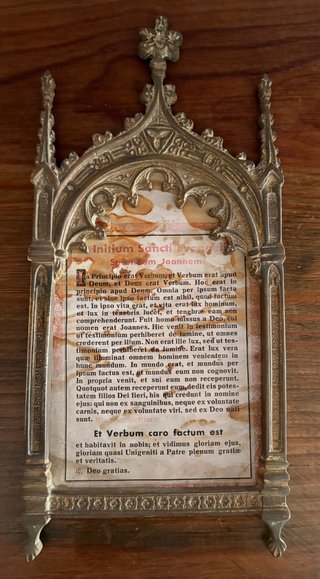 Initium Sancti Evangelii
Secundum Joannem
In Principio erat Verbum, et Verbum erat apud
Deum, et Deus erat Verbum. Hoc erat in
principio apud Deum. Omnia per ipsum facta
sunt, et sine ipso factum est nihil, quod factum
est. In ipso vita erat, et vita erat lux hominum,
et lux in tenebris lucet, et tenebræ eam non
comprehenderunt. Fuit homo missus a Deo, cui
nomen erat Joannes. Hic venit in testimonium
ut testimonium perhiberet de lumine, ut omnes
crederent per illum. Non erat ille lux, sed ut tes-
timonium perhiberet de lumine. Erat lux vera
quæ illuminat omnem hominem venientem in
hunc mundum. In mundo erat, et mundus per
ipsum factus est, et mundus eum non cognovit.
In propria venit, et sui eum non receperunt.
Quotquot autem receperunt eum, dedit eis potes-
tatem filios Dei fieri, his qui credunt in nomine
ejus: qui non ex sanguinibus, neque ex voluntate
carnis, neque ex voluntate viri, sed ex Deo nati
sunt.
Et Verbum caro factum est
et habitavit in nobis; et vidimus gloriam ejus,
gloriam quasi Unigeniti a Patre plenum gratiæ
et veritatis.
℟. Deo gratias.